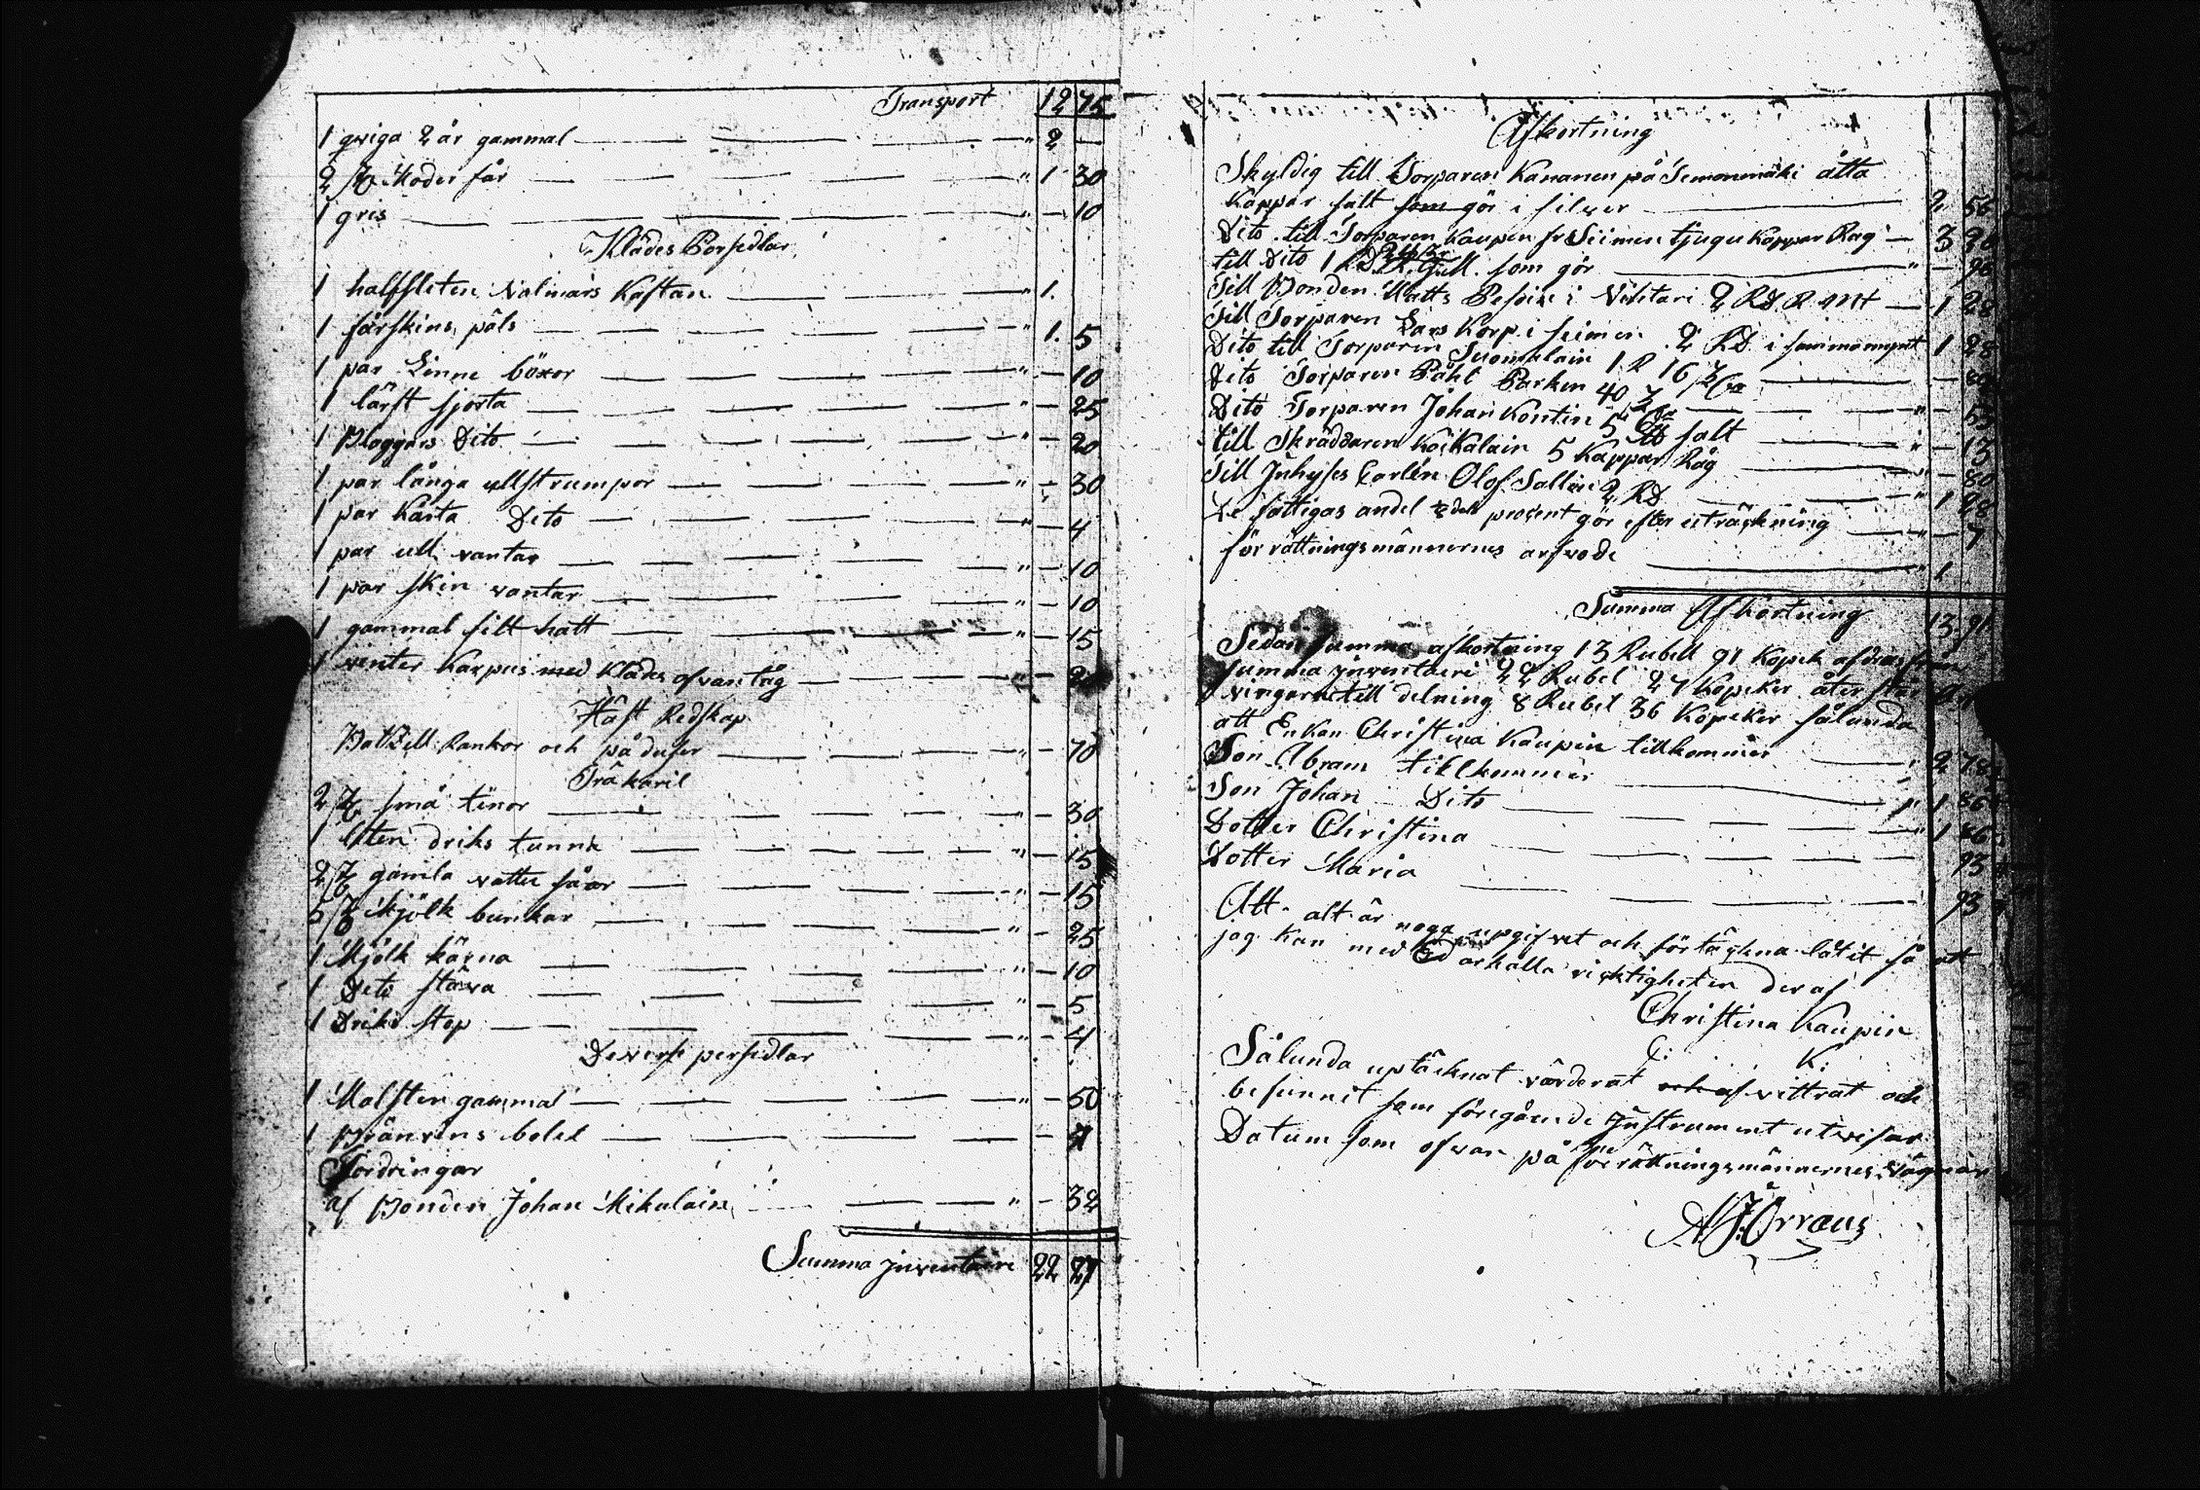 Transport 12 75
1 qwiga 2 år gammal — " 2 —
2 st Moder får — " 1 30
1 gris — " — 10
Klädes Persedlar
1 halfsleten Valmars Kaftan — " 1.
1 fårskins päls — " 1. 5
1 par Linne böxor — " — 10
1 lärft sjorta — " — 25
1 Bloggars Dito — " — 20
1 par långa ullstrumpor — " — 30
1 par Kårta Dito — " — 4
1 par ull vantar — " — 10
1 par skin vantar — " — 10
1 gammal filt hatt — " — 15
1 vinter Karpus med Klädes ofvantåg — " —
Häst Redskap
Rankor och på duser — " — 70
Trä käril
2 st små tinor — " — 30
1 liten driks tunna — " — 15
2 st gamla vatten såar — " — 15
5 st Mjölk bunkar — " — 25
1 Mjölk kärna — " — 10
1 Dito stäva — " — 5
1 Driks stop — " — 4
Diverse persedlar
1 Malsten gammal — " — 50
1 Bränvins botel — " —
Fordringar
af Bonden Johan Mikulain — " — 32
Summa jnventairi 22 27
Afkortning
Skyldig till Torparen Kananen på Simonmäki åtta
Kappar salt som gör i silver — 2 56
Dito till Torparen Kaupin fr Siimen tjugu Kappar Rag — 3 20
till Dito 1 RD som gör — " — 96
Till Bonden Matts Pesoin i Vihtari 2 RD R Mt — 1 28
Till Torparen Lars Korp i siimen 2 RD i samma mynt 1 28
Dito till Torparen Suomalain 1 R 16
Dito Torparen Påhl Parken 40 — " — 55
Dito Torparen Johan Kontin 5 salt — " — 13
till Skräddaren Koikalain 5 Kappar Råg — " — 80
Till Jnhyses karlen Olof Sallin 2 RD — " 1 28
De fattigas andel procent gör efter uträckning — — 7
för rättningsmännernes arfvode — " 1
Summa Afkortning 13 91
Sedan summa afkortning 13 Rubell 91 Kopek afdras från
summa jnventairi 22 Rubel 27 Kopeker åter står
vingarne till delning 8 Rubel 36 Kopeker sålunda
att Enkan Christina Kaupin tillkommer — " 2 78
Son Abram tillkommer — " 1 86
Son Johan Dito — " 1 86
Dotter Christina — 93
Dotter Maria — 93
Att alt är noga upgifvet och förtäckna låtit så att
jag kan med Ed ärhålla ricktigheten deraf
Christina Kaupin
C: K:
Sålunda uptäcknat värderat och af vittrat och
befunnit som föregående Jnstrument utvisar
Datum som ofvan på för rättningsmännernes vägnar